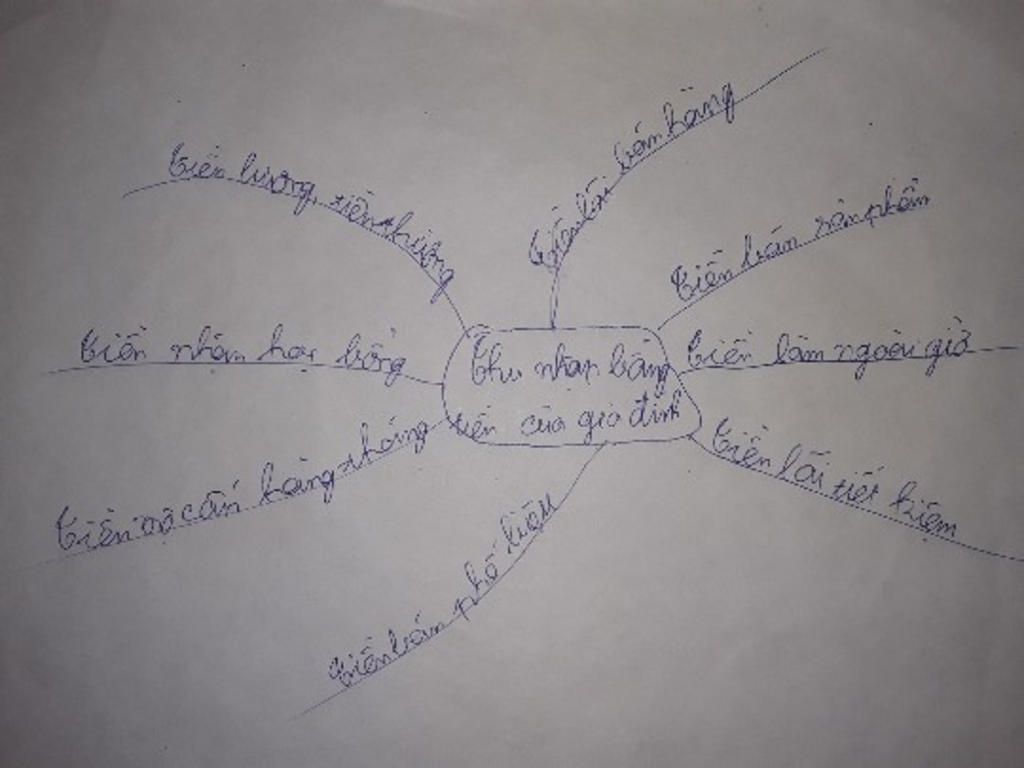 Thu nhập bằng
tiền của gia đình
Tiền lương, tiền thưởng
Tiền lãi bán hàng
Tiền bán sản phẩm
Tiền làm ngoài giờ
Tiền lãi tiết kiệm
Tiền bán phế liệu
Tiền trợ cấp hàng tháng
Tiền nhận học bổng